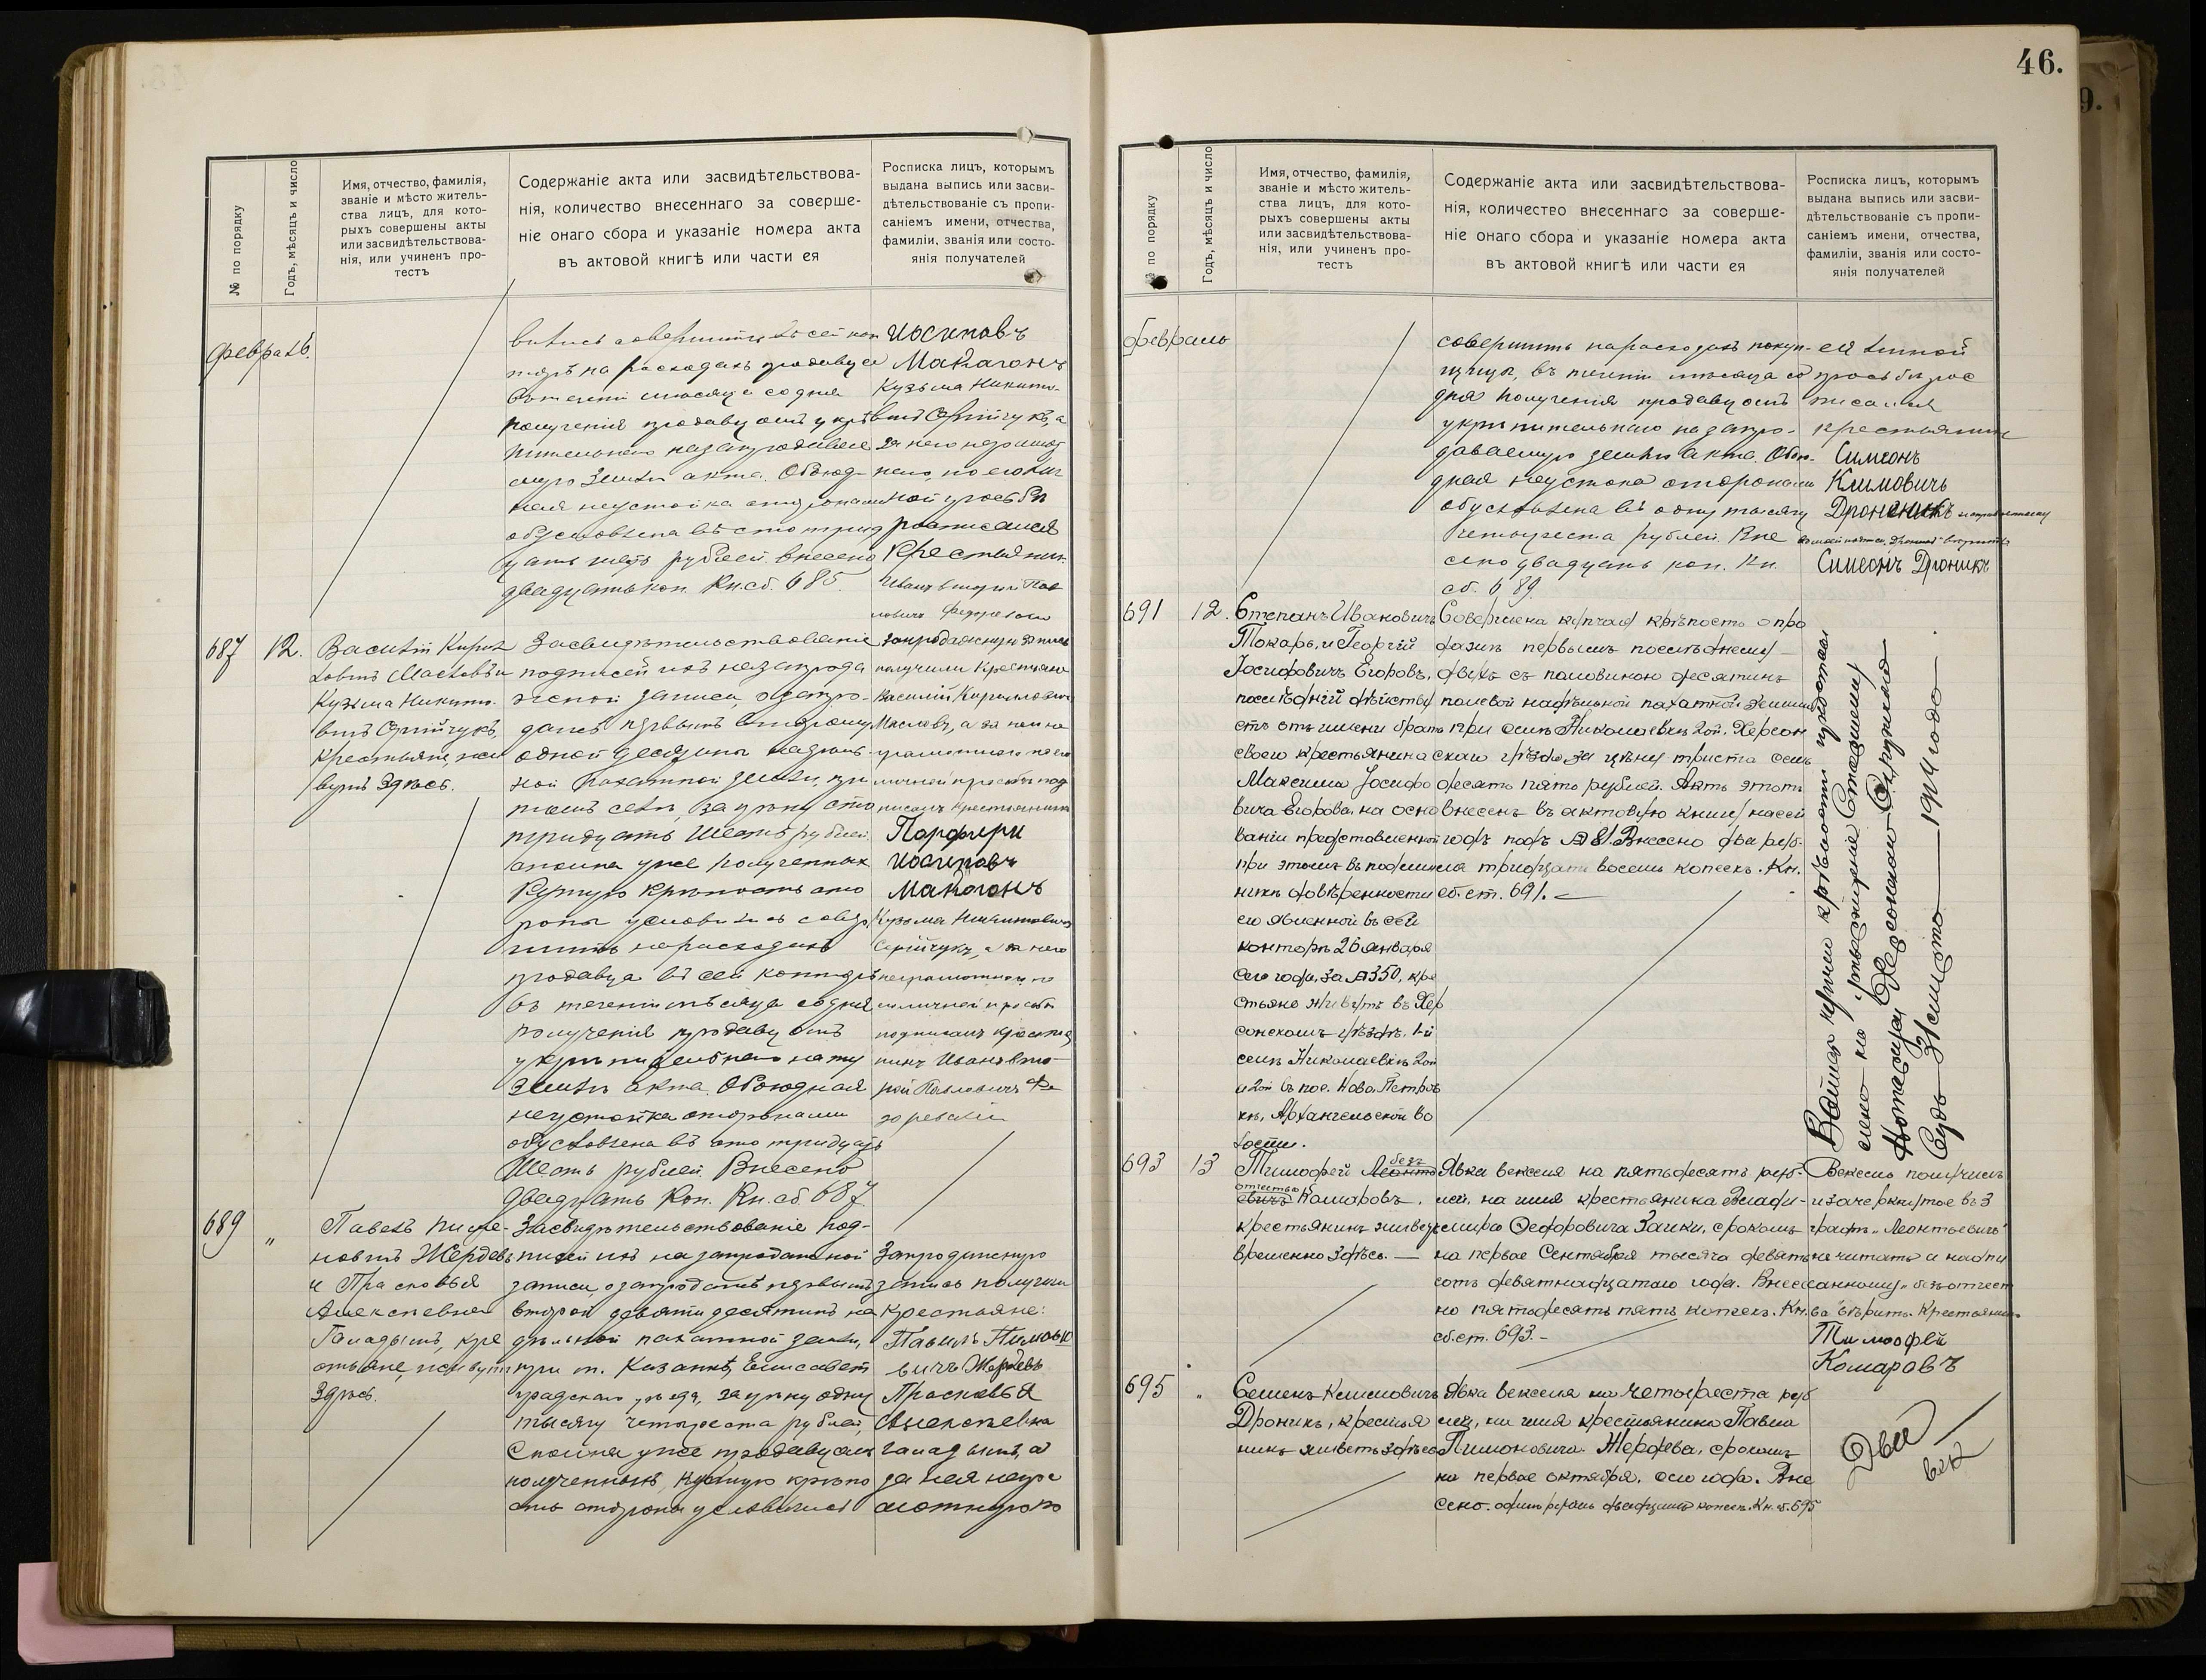 46.
№ по порядку
Годъ, мѣсяцъ и число
Имя, отчество, фамилія,
званіе и мѣсто житель-
ства лицъ, для кото-
рыхъ совершены акты
или засвидѣтельствова-
нія, или учиненъ про-
тестъ
Содержаніе акта или засвидѣтельствова-
нія, количество внесеннаго за соверше-
ніе онаго сбора и указаніе номера акта
въ актовой книгѣ или части ея
Росписка лицъ, которымъ
выдана выпись или засви-
дѣтельствованіе съ пропи-
саніемъ имени, отчества,
фамиліи, званія или состо-
янія получателей
февраль.
вились совершить въ сей кон
торѣ на расходахъ продавца
въ теченіи мѣсяца со дня
полученія продавцомъ укрѣ
пительнаго на запродавае
мую землю акта. Обоюд-
ная неустойка сторонами
обусловлена въ сто трид
цать шесть рублей. Внесено
двадцать коп. Кн. сб. 685.
Иосиповъ
Макагонъ
Кузьма Никито-
вичъ Сергійчукъ, а
за него неграмот
наго, по его лич
ной просьбѣ
росписался
Крестьянинъ
Иванъ второй Пав
ловичъ
687
12.
Василій Кирил
ловичъ Масловъ и
Кузьма Никито-
вичъ Сергійчукъ,
крестьяне, жи
вутъ здѣсь.
Засвидѣтельствованіе
подписей на запрода
жной записи, о запро-
дажѣ первымъ второму
одной десятины надѣль
ной пахатной земли, при
томъ селѣ, за цѣну сто
тридцать шесть рублей
сполна уже полученныхъ
Купчую крѣпость сто
роны условились совер
шить на расходахъ
продавца въ сей конторѣ
въ теченіи мѣсяца со дня
полученія продавцомъ
укрѣпительнаго на ту
землю акта. Обоюдная
неустойка сторонами
обусловлена въ сто тридцать
шесть рублей. Внесено
двадцать коп. Кн. сб. 687.
Запродажную запись
получили крестьяне
Василій Кирилловичъ
Масловъ, а за него не
грамотнаго по его
личной просьбѣ под
писалъ крестьянинъ
Порфири
Иосиповъ
Макогонъ
Кузьма Никитовичъ
Сергійчукъ, а за него
неграмотнаго по
его личной просьбѣ
подписалъ крестья
нинъ Иванъ вто-
рой Павловичъ
689
"
Павелъ Пиме-
новичъ Жердевъ
и Прасковья
Алексѣевна
Галадымъ, кре
стьяне, живутъ
здѣсь.
Засвидѣтельствованіе под-
писей на запродажной
записи, о запродажѣ первымъ
второй девяти десятинъ на
дѣльной пахатной земли,
при м. Казанкѣ, Елисавет
градскаго уѣзда, за цѣну одну
тысячу четыреста рублей,
сполна уже продавцомъ
полученныхъ, купчую крѣпо
сть стороны условились
Запродажную
запись получили
крестьяне:
Павилъ Пимоно
вичъ Жердевъ
Прасковья
Алексѣевна
Галадымъ, а
за нея негра
мотную по
№ по порядку
Годъ, мѣсяцъ и число
Имя, отчество, фамилія,
званіе и мѣсто житель-
ства лицъ, для кото-
рыхъ совершены акты
или засвидѣтельствова-
нія, или учиненъ про-
тестъ
Содержаніе акта или засвидѣтельствова-
нія, количество внесеннаго за соверше-
ніе онаго сбора и указаніе номера акта
въ актовой книгѣ или части ея
Росписка лицъ, которымъ
выдана выпись или засви-
дѣтельствованіе съ пропи-
саніемъ имени, отчества,
фамиліи, званія или состо-
янія получателей
февраль
совершить на расходахъ покуп-
щицы, въ теченіи мѣсяца со
дня полученія продавцомъ
укрѣпительнаго на запро-
даваемую землю акта. Обою-
дная неустойка сторонами
обусловлена въ одну тысячу
четыреста рублей. Вне
сено двадцать коп. Кн.
сб. 689.
ея личной
просьбѣ рос
писался
крестьянинъ
Симеонъ
Климовичъ
Дроникъ
Симеонъ Дроникъ
691
12.
Степанъ Ивановичъ
Токарь, и Георгій
Іосифовичъ Егоровъ,
послѣдній дѣйству
етъ отъ имени брата
своего крестьянина
Максима Іосифо
вича Егорова, на осно
ваніи представленной
при этомъ въ подлин
никѣ довѣренности
его явленной въ сей
конторѣ 26 января
сего года, за № 350, кре
стьяне живутъ въ Хер
сонскомъ уѣздѣ, 1-й
селѣ Николаевкѣ 2ой
и 2ой въ пос. Ново-Петров
кѣ, Архангельской во
лости.
Совершена купчая крѣпость о про
дажѣ первымъ послѣднему
двухъ съ половиною десятинъ
полевой надѣльной пахатной земли
при селѣ Николаевкѣ 2ой, Херсон
скаго уѣзда за цѣну триста семь
десятъ пять рублей. Актъ этотъ
внесенъ въ актовую книгу на сей
годъ подъ № 81. Внесено два руб-
ля тридцать восемь копеекъ. Кн.
сб. ст. 691.
купчей крѣпости
сено на утвержденіе Старшему
Нотаріусу Херсонскаго Окружнаго
Суда 1914 года
693
13
Тимофей Леонть безъ
евичъ отчества Комаровъ,
крестьянинъ живетъ
временно здѣсь.
Явка векселя на пятьдесятъ руб-
лей, на имя крестьянина Влади-
мира Ѳедоровича Заики, срокомъ
на первое Сентября тысяча девять
сотъ девятнадцатаго года. Внесе
но пятьдесятъ пять копеекъ. Кн.
сб. ст. 693.
Вексель получилъ
и зачеркнутое въ 3
графѣ „Леонтьевичъ"
не читать а надпи
санному „безъ отчест
ва" вѣрить. Крестьянинъ
Тимофей
Комаровъ
695
"
Семенъ Климовичъ
Дроникъ, крестья
нинъ живетъ здѣсь
Явка векселя на четыреста руб
лей, на имя крестьянина Павла
Пимоновича Жердева, срокомъ
на первое октября, сего года. Вне
сено один рубль двадцать копеекъ. Кн. сб. 695